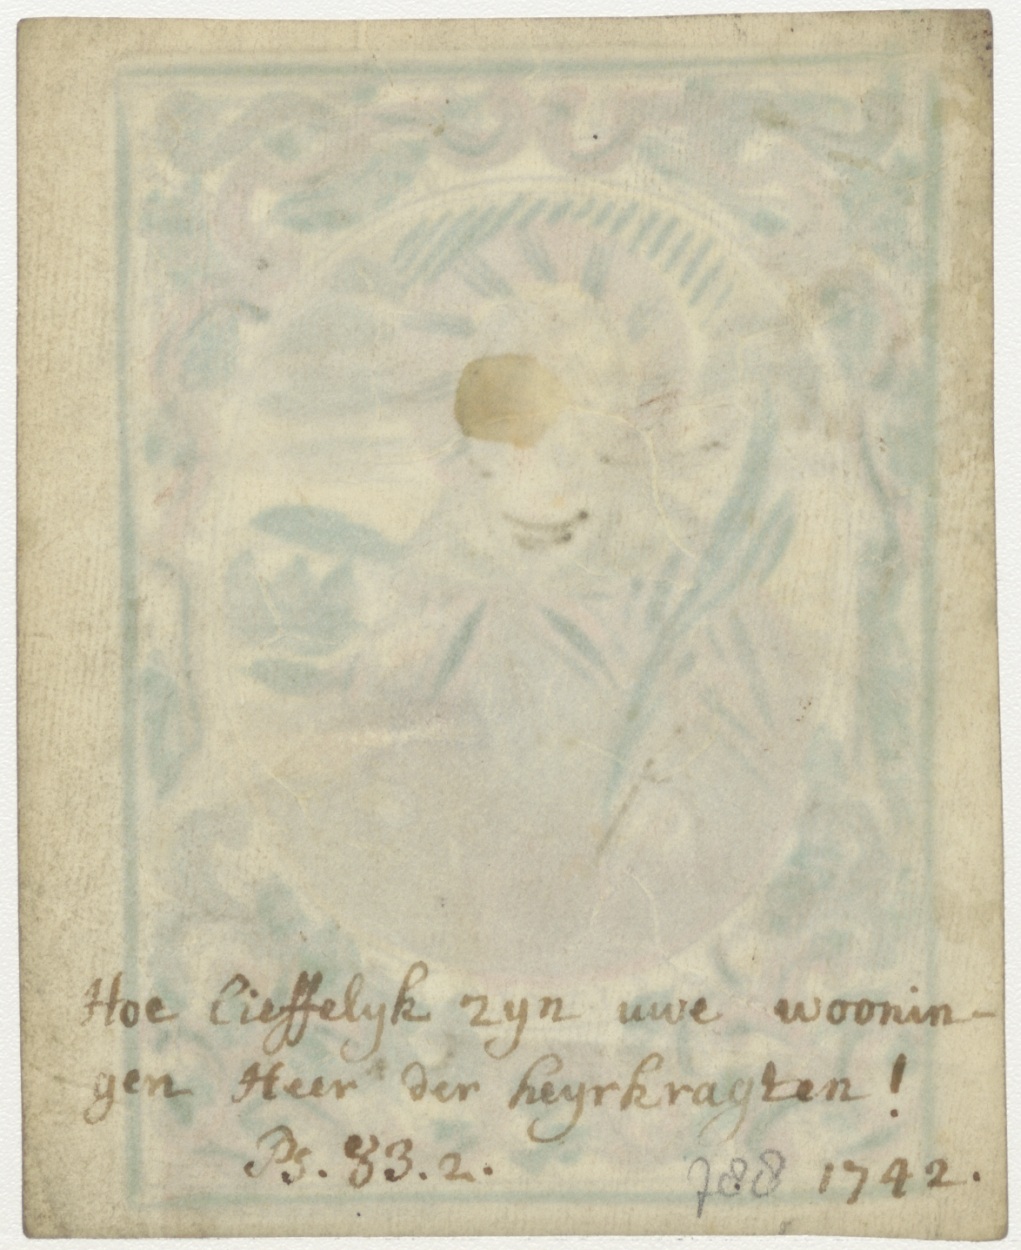 Hoe lieffelyk zyn uwe woonin-
gen Heer der heyrkragten!
Ps. 83.2. 788 1742.